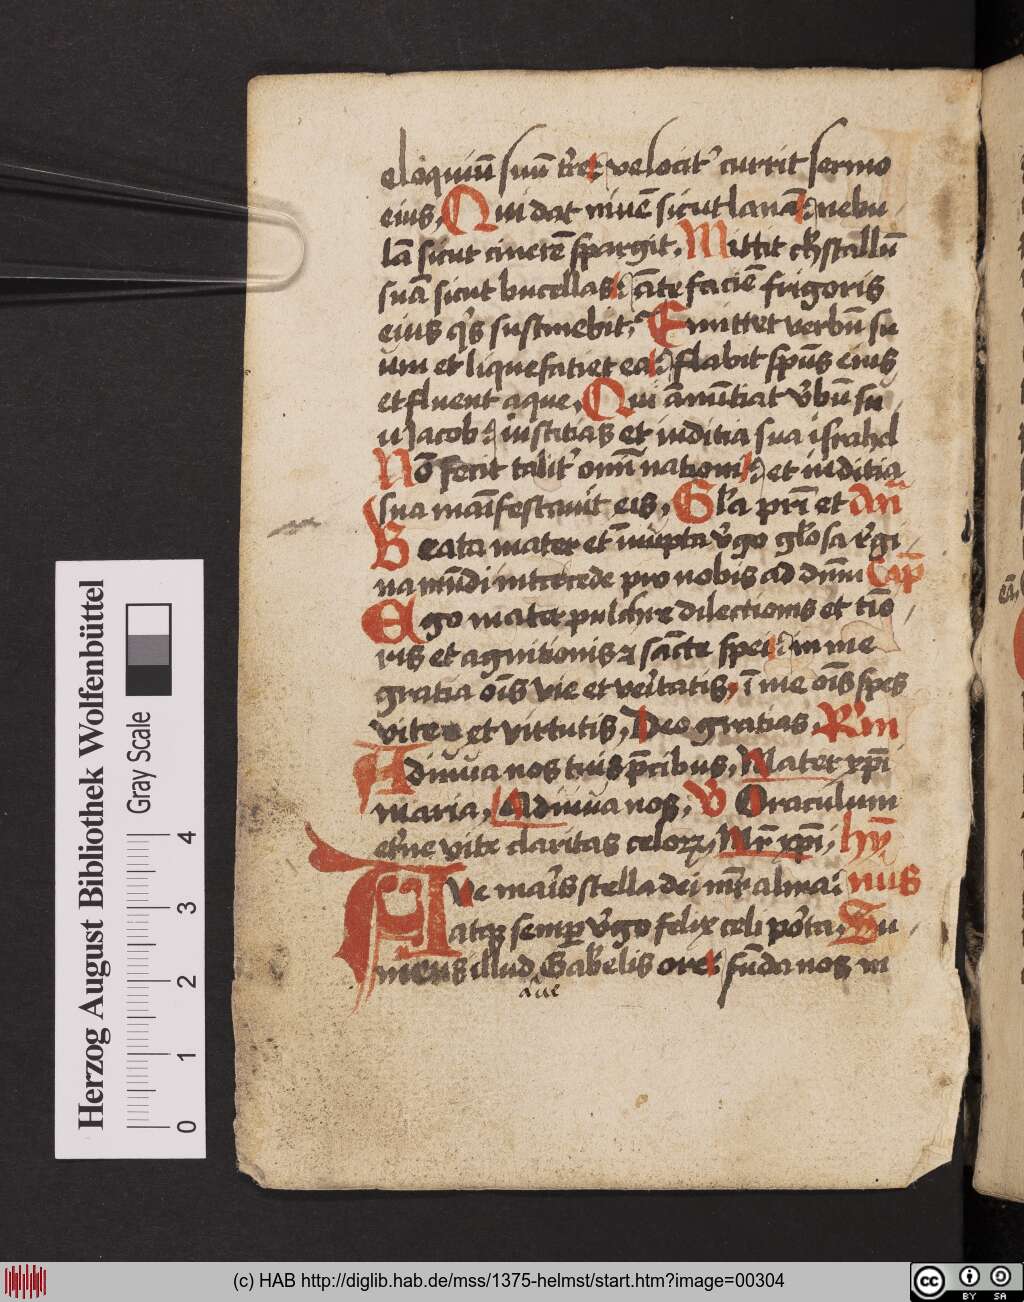 eloquiū suū tr̄e velocit᷒ currit sermo
eius, Qui dat nivē sicut lanā nebu
lā sicut cinerē spargit. Mittit cristallū
suā sicut bucellas: āte faciē frigoris
eius q̄s sustinebit, Emittet verbū su
um et liquefatiet ea flabit spūs eius
et fluent aque, Qui ānūtiat v̄bū su
u Jacob: iustitias et iuditia sua israhel
Nō fecit talit᷒ omī nationi: et iuditia
sua māifestavit eis, Gl̄a pr̄i et Añ
Beata mater et īnupta v̄go gl̄osa r̄gi
na mūdi intercede pro nobis ad dn̄m Cap̄
Ego mater pulchre dilectionis et tīo
ris et agnitionis et sācte spei in me
gratia oīs vie et veītatis, ī me oīs spes
vite et virtutis, Deo gratias, R̄m
Adiuva nos tuis p̄cibus, Mater xp̄i
maria, Adiuva nos, V Oraculum
et̄ne vite claritas celorꝝ, Mr̄ xp̄i, hȳ
Ave maīs stella dei mr̄ alma: nus
atqꝫ semp̄ v̄go felix celi porta, Su
mens illud Gabrielis ore fūda nos in
aue
Herzog August Bibliothek Wolfenbüttel
Gray Scale
0 1 2 3 4
(c) HAB http://diglib.hab.de/mss/1375-helmst/start.htm?image=00304
cc BY SA